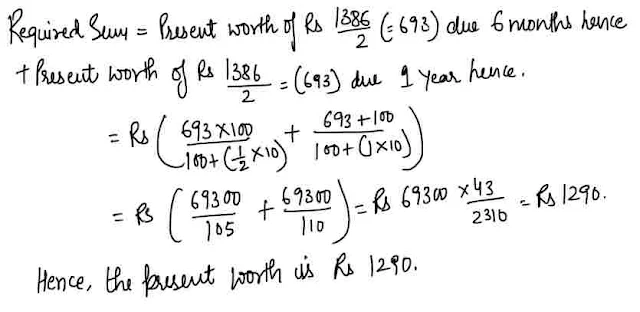 Required Sum = Present worth of Rs 1386/2 (=693) due 6 months hence
+ Present worth of Rs 1386/2 = (693) due 1 year hence.
= Rs (693×100/100+(1/2×10) + 693+100/100+(1×10))
= Rs (69300/105 + 69300/110) = Rs 69300 × 43/2310 = Rs 1290.
Hence, the present worth is Rs 1290.